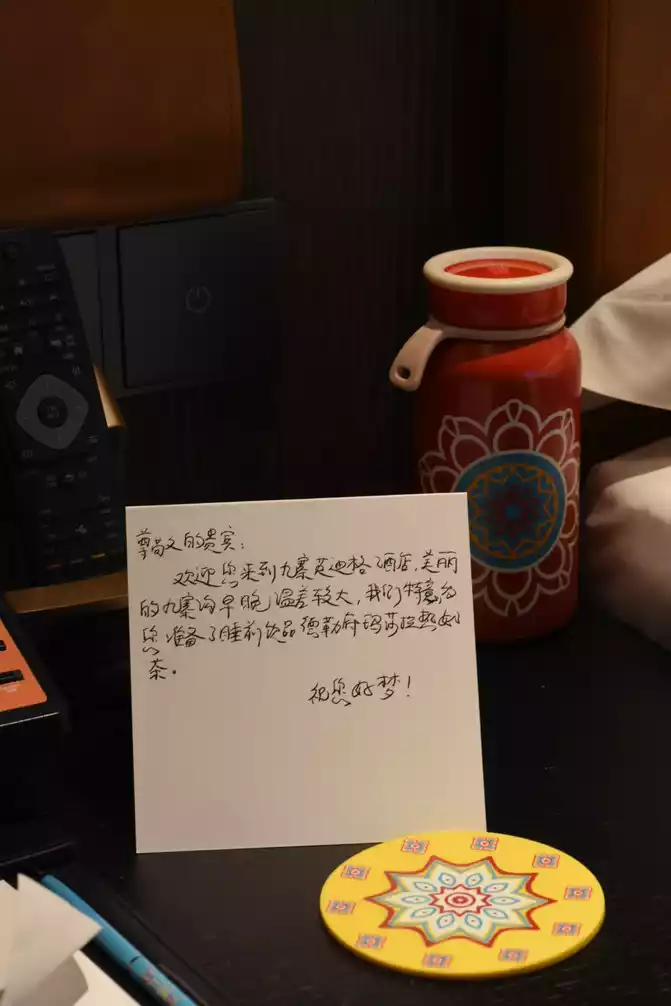 尊敬的贵宾：
欢迎您来到九寨英迪格酒店，美丽
的九寨沟早晚温差较大，我们特意为
您准备了睡前饮品德勒府玛莎拉热奶
茶。
祝您好梦！